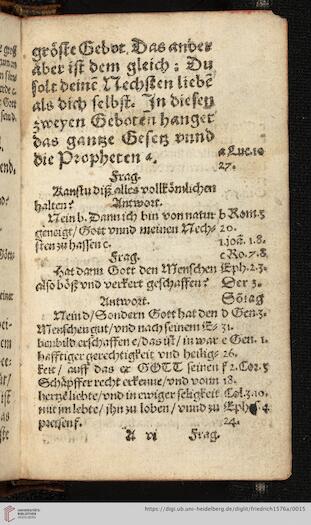 gröste Gebot. Das ander
aber ist dem gleich: Du
solt deinē Nechsten liebē
als dich selbst. In diesen
zweyen Geboten hanget
das gantze Gesetz vnnd
die Propheten a.
a Luc. 10
27.
Frag.
Kanstu diß alles vollkömlichen
halten?
Antwort.
Nein b. Dann ich bin von natur
b Rom. 3
geneigt / Gott vnnd meinen Nech-
20.
sten zu hassen c.
1. joñ. 1. 8.
Frag.
c Ro. 7. 8.
Hat dann Gott den Menschen
Eph. 2. 3.
also böß vnd verkert geschaffen?
Der 3.
Antwort.
Sõtag
Nein d / Sondern Gott hat den
d Gen. 1.
Menschen gut / vnd nach seinem E-
31.
benbild erschaffen e / das ist / in war
e Gen. 1.
hafftiger gerechtigkeit vnd heilig-
26.
keit / auff das er GOTT seinen
f 2. Cor. 3
Schöpffer recht erkenne / vnd vonn
18.
hertzē liebte / vnd in ewiger seligkeit
Col. 3. 10.
mit im lebte / jhn zu loben / vnnd zu
Ephes. 4
preisen f.
24.
A vj
Frag.
UNIVERSITÄTS-
BIBLIOTHEK
HEIDELBERG
https://digi.ub.uni-heidelberg.de/diglit/friedrich1576a/0015